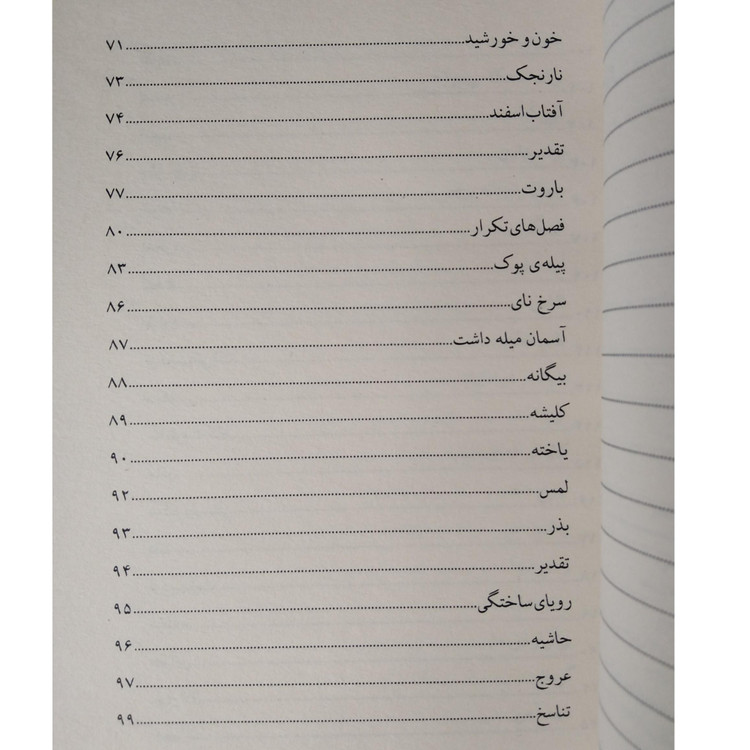 خون و خورشید ........ ۷۱
نارنجک ........ ۷۳
آفتاب اسفند ........ ۷۴
تقدیر ........ ۷۶
باروت ........ ۷۷
فصل‌های تکرار ........ ۸۰
پیله‌ی پوک ........ ۸۳
سرخ نای ........ ۸۶
آسمان میله داشت ........ ۸۷
بیگانه ........ ۸۸
کلیشه ........ ۸۹
یاخته ........ ۹۰
لمس ........ ۹۲
بذر ........ ۹۳
تقدیر ........ ۹۴
رویای ساختگی ........ ۹۵
حاشیه ........ ۹۶
عروج ........ ۹۷
تناسخ ........ ۹۹